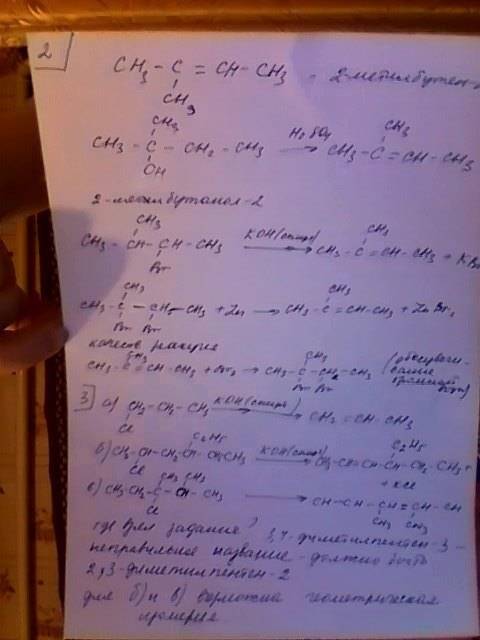 2
CH₃ - C = CH - CH₃ - 2-метилбутен-
CH₃
CH₃
CH₃ - C - CH₂ - CH₃ H₂SO₄ → CH₃ - C = CH - CH₃
OH CH₃
2-метилбутанол-2
CH₃ CH₃
CH₃ - CH - CH - CH₃ KOH (спирт) → CH₃ - C = CH - CH₃ + KBr
Br
CH₃ CH₃
CH₃ - C - CH - CH₃ + Zn → CH₃ - C = CH - CH₃ + ZnBr₂
Br Br
качеств реакция
CH₃ CH₃
CH₃ - C = CH - CH₃ + Br₂ → CH₃ - C - CH - CH₃ (обесцвечи-
Br Br вание бромной воды)
3) а) CH₃ - CH - CH₃ KOH (спирт) → CH₂ = CH - CH₃
Cl
C₂H₅ C₂H₅
б) CH₃ - CH - CH₂ - CH - CH₂ CH₃ KOH (спирт) → CH₃ - CH = CH - CH - CH₂ CH₃ +
Cl + KCl
CH₃ CH₃
в) CH₃ CH₂ - C - CH - CH₃ →
Cl CH₃ CH₃
где взял задания? 3,4-диметилпентен-3 -
неправильное название - должно быть
2,3-диметилпентен-2
для б) и в) возможна геометрическая
изомерия